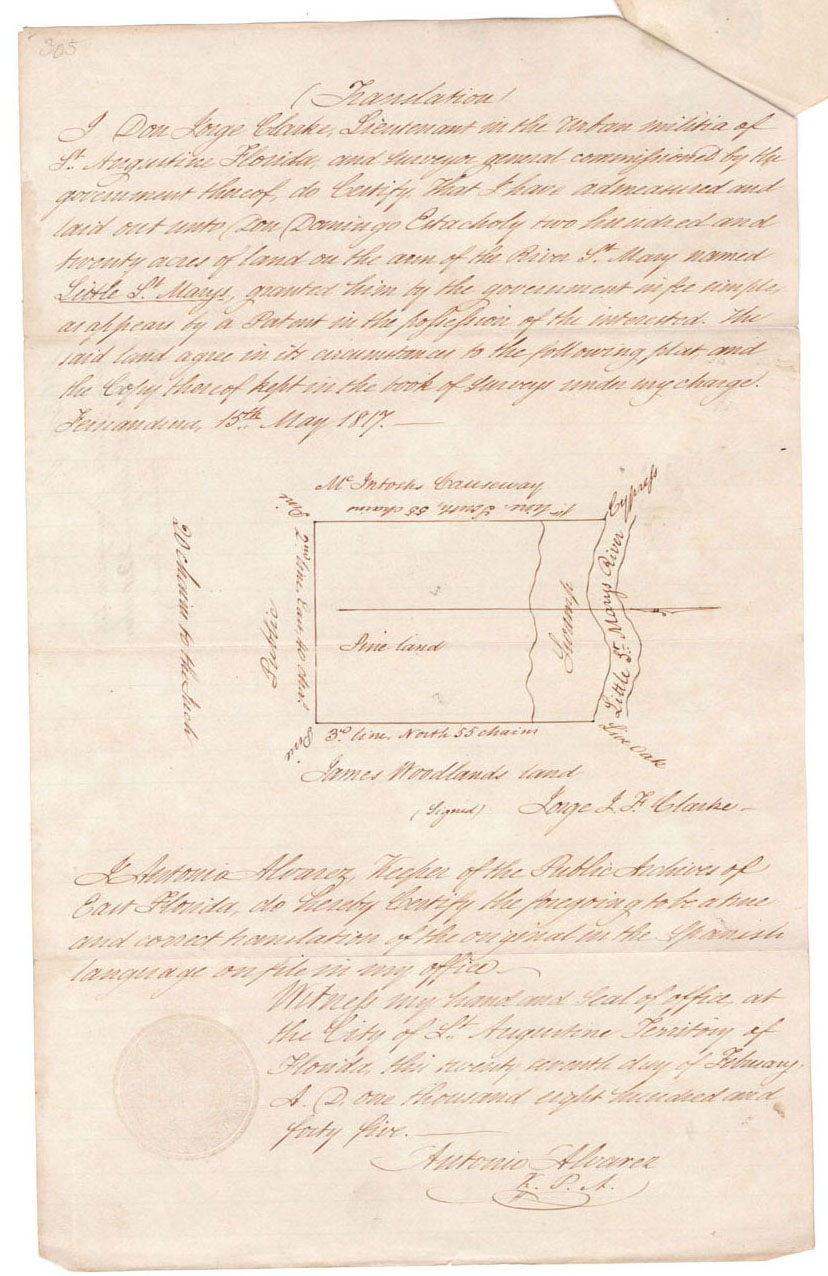 305
(Translation)
I Don Jorge Clarke, Lieutenant in the Urban militia of
St. Augustine Florida, and Surveyor general commissioned by the
government thereof, do Certify, That I have admeasured and
laid out unto Don Domingo Estacholy two hundred and
twenty acres of land on the arm of the River St. Mary named
Little St. Marys, granted him by the government in fee simple,
as appears by a Patent in the possession of the interested. The
said land agree in its circumstances to the following plat and
the Copy thereof kept in the book of surveys under my charge.
Fernandina, 15th May 1817.
Mc Intoshs Causeway
1st line, South, 55 chains
Pine
Cypress
2nd line, East, 40 chs.
Public
20 chains to the Inch
Pine land
Swamp
Little St. Marys River
Pine
3d line, North 55 chains
Live Oak
James Woodlands land
(Signed) Jorge J. F. Clarke
I Antonio Alvarez, Keeper of the Public Archives of
East Florida, do hereby Certify the foregoing to be a true
and correct translation of the original in the Spanish
language on file in my office
Witness my hand and Seal of office, at
the City of St. Augustine Territory of
Florida, this twenty seventh day of February,
A. D. one thousand eight hundred and
forty five.
Antonio Alvarez
K. P. A.